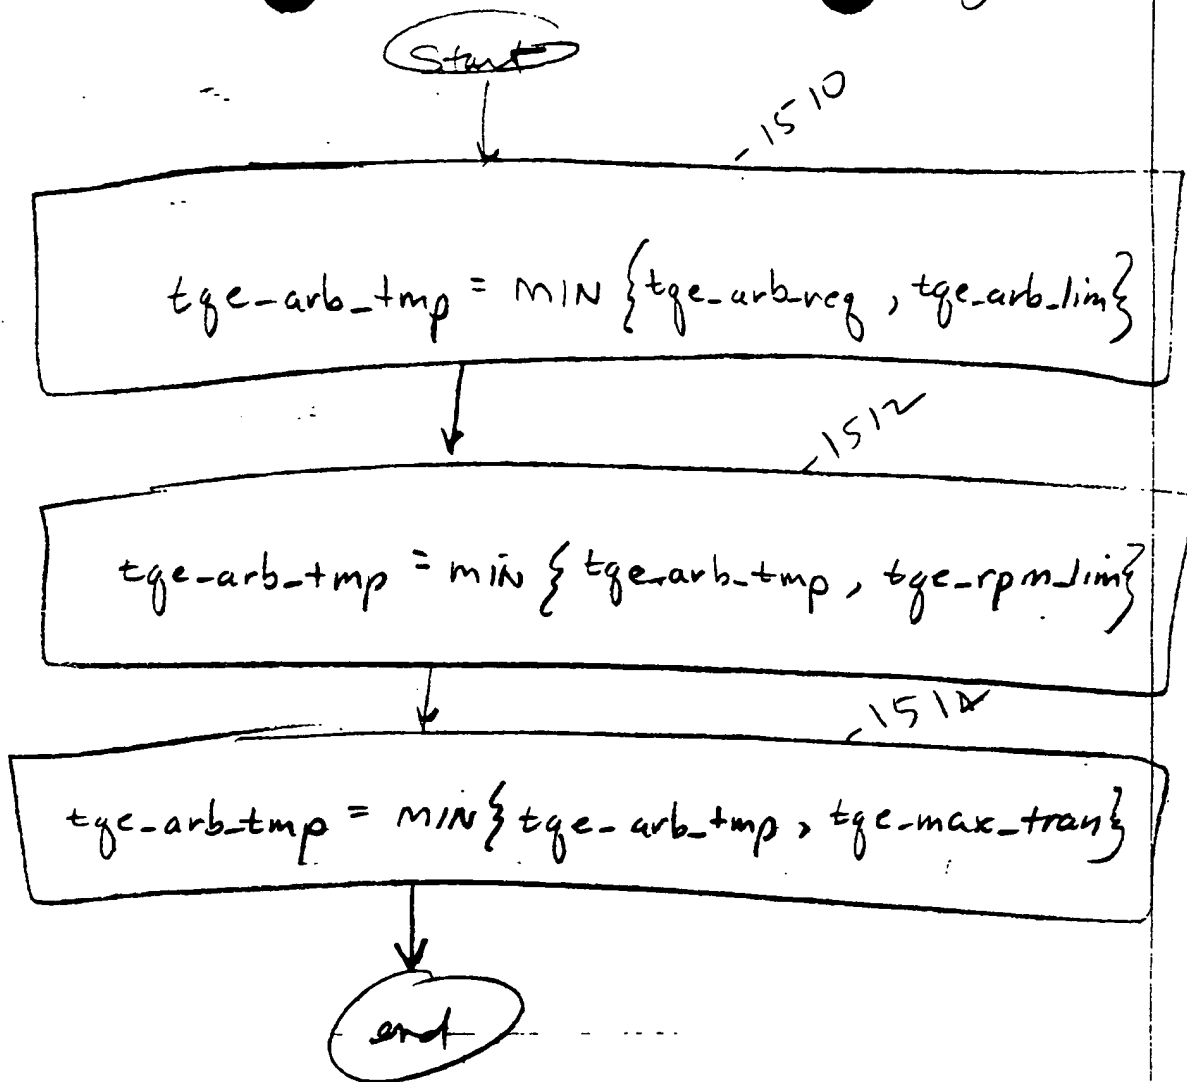 Start
1510
tqe_arb_tmp = MIN {tqe_arb_req, tqe_arb_lim}
1512
tqe_arb_tmp = MIN {tqe_arb_tmp, tqe_rpm_lim}
tqe_arb_tmp = MIN {tqe_arb_tmp, tqe_max_tran}
end